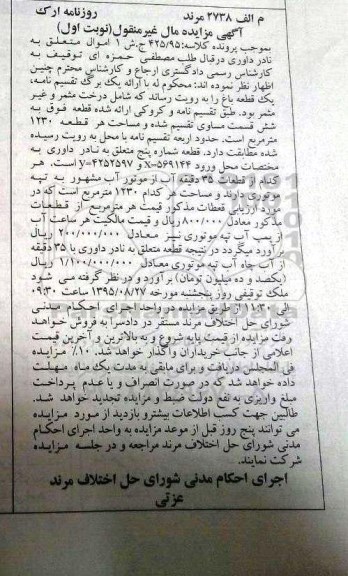 م الف ۲۷۳۸ مرند روزنامه ارک
آگهی مزایده مال غیرمنقول(نوبت اول)
بموجب پرونده کلاسه:۴۲۵/۹۵ ج.ش ۱ اموال متعلق به
نادر داوری درقبال طلب مصطفی حمزه ای توقیف به
کارشناس رسمی دادگستری ارجاع و کارشناس محترم چنین
اظهار نظرنموده اند: محکوم له با ارائه یک برگ تقسیم نامه،
یک قطعه باغ را به رویت رساند که شامل درخت مثمر و غیر
مثمر بود. طبق تقسیم نامه و کروکی ارائه شده قطعه فوق به
شش قسمت مساوی تقسیم شده و مساحت هر قطعه ۱۲۳۰
مترمربع است. حدود اربعه تقسیم نامه با محل به رویت رسیده
شده مطابقت دارد. قطعه شماره پنج متعلق به نادر داوری به
مختصات محل ورود x=۵۶۹۱۴۴ y=۴۲۵۲۵۹۷ است. هر
کدام از قطعات ۳۵ دقیقه آب از موتور آب مشهور به تپه
موتوری دارند و مساحت هر کدام ۱۲۳۰ مترمربع است که در
مورد ارزیابی قطعات مذکور قیمت هر مترمربع از قطعات
مذکور معادل ۸۰۰/۰۰۰ ریال و قیمت مالکیت هر ساعت آب
از پمپ آب تپه موتوری نیز معادل ۲۰۰/۰۰۰/۰۰۰ ریال
برآورد میگردد در نتیجه قطعه متعلق به نادر داوری با ۳۵ دقیقه
از آب چاه آب تپه موتوری معادل ۱/۱۰۰/۰۰۰/۰۰۰ ریال
(یکصد و ده میلیون تومان) برآورد و در نظر گرفته می شود
ملک توقیفی روز پنجشنبه مورخه ۱۳۹۵/۰۸/۲۷ ساعت ۰۹:۳۰
الی ۱۱:۳۰ از طریق مزایده در واحد اجرای احکام مدنی
شورای حل اختلاف مرند مستقر در دادسرا به فروش خواهد
رفت مزایده از قیمت پایه شروع و به بالاترین و آخرین قیمت
اعلامی از جانب خریداران واگذار خواهد شد. ۱۰٪ مزایده
فی المجلس دریافت و برای مابقی به مدت یک ماه مهلت
داده خواهد شد که در صورت انصراف و یا عدم پرداخت
مبلغ واریزی به نفع دولت ضبط و مزایده تجدید خواهد شد.
طالبین جهت کسب اطلاعات بیشترو بازدید از مورد مزایده
می توانند پنج روز قبل از موعد مزایده به واحد اجرای احکام
مدنی شورای حل اختلاف مرند مراجعه و در جلسه مزایده
شرکت نمایند.
اجرای احکام مدنی شورای حل اختلاف مرند
عزتی